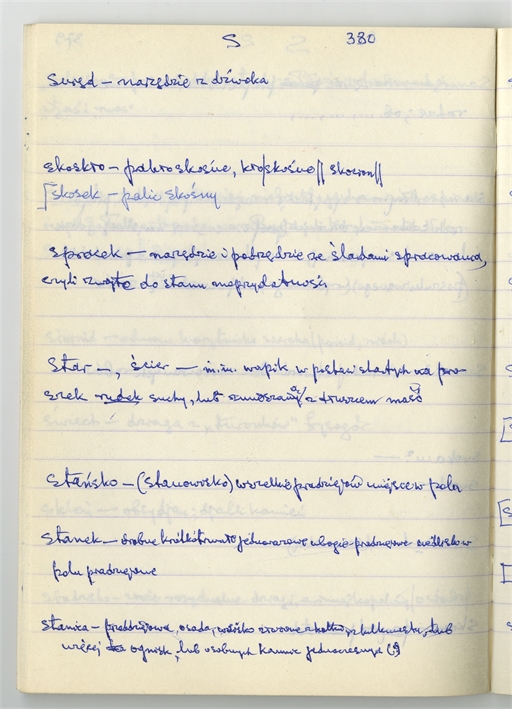 S 380
Surąd – narzędzie z dźwoka
skoskro – pakroskośne, kroskośne || skocron ||
[skosek – palic skośny
spracek – narzędzie i podrzędzie ze śladami spracowania,
czyli zużyte do stanu nieprzydatności
Star –, ścier – m.in. wapik w postaci startych na pro-
szek rudek suchy, lub zmieszany z tłuszczem maść
Stańsko – (stanowisko) wszelkie pradziejowe miejsce w polu
Stanek – drobne krótkotrwałe jednorazowe pradziejowe siedlisko w
polu pradziejowe
Stanica – pradziejowa osada,
więcej ognisk, lub osobnych jednoczesnych (?)